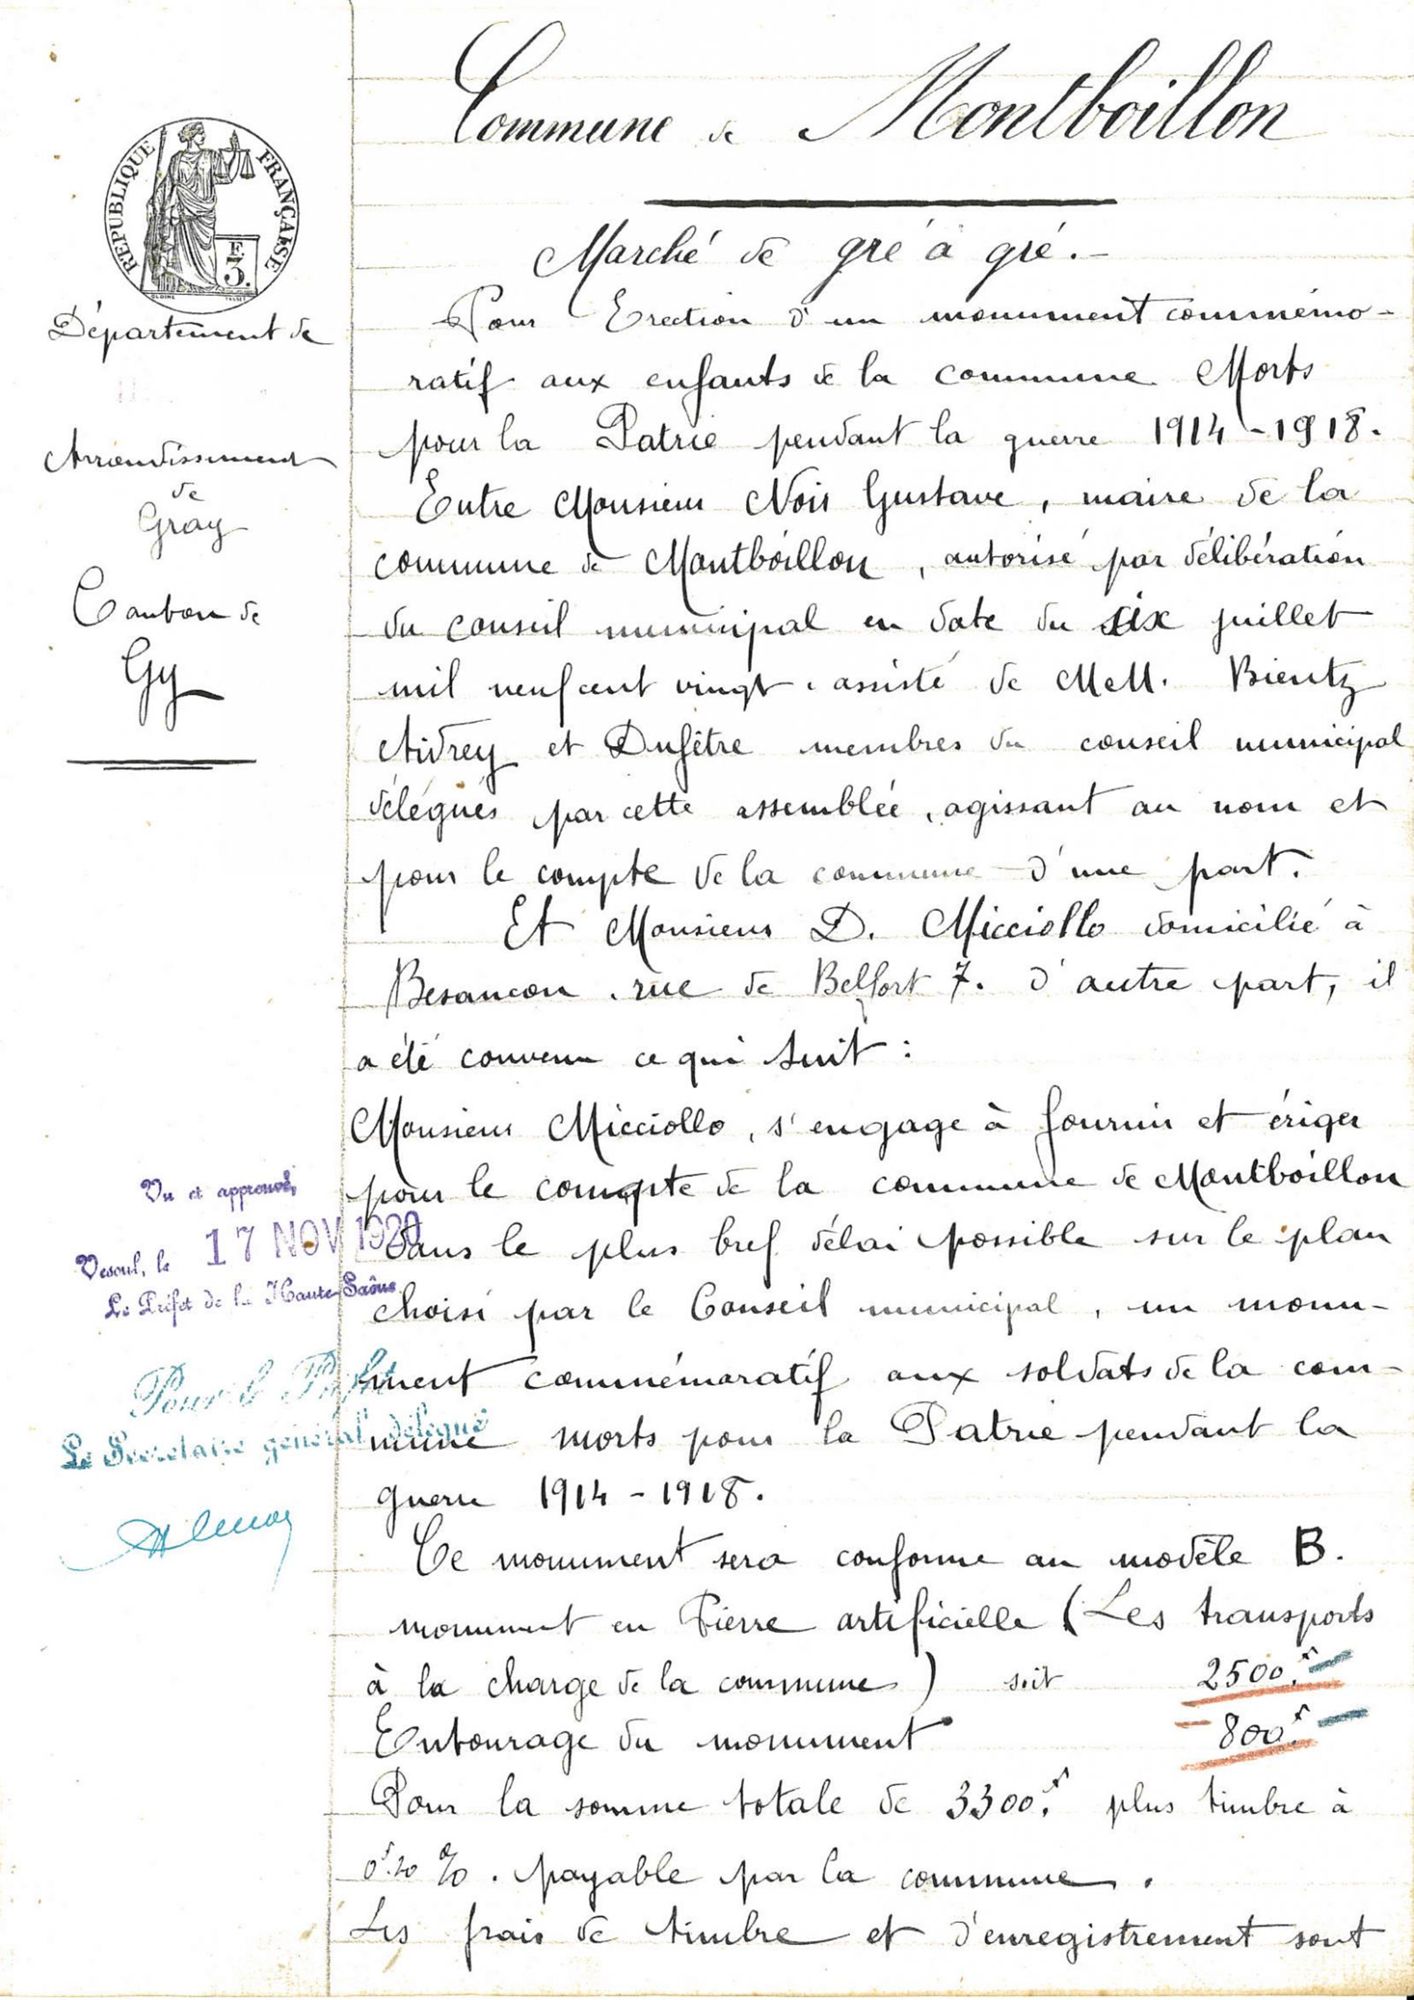 Commune de Montboillon
RÉPUBLIQUE FRANÇAISE
F
3.
Marché de gré à gré.-
Département de
Arrondissement
de
Gray
Canton de
Gy
Pour Erection d'un monument commémo-
ratif aux enfants de la commune Morts
pour la Patrie pendant la guerre 1914-1918.
Entre Monsieur Noir Gustave, maire de la
commune de Montboillon, autorisé par délibération
du conseil municipal en date du six juillet
mil neuf cent vingt, assisté de MeM. Bientz
Aidrey et Dufêtre membres du conseil municipal
délégués par cette assemblée, agissant au nom et
pour le compte de la commune d'une part.
Et Monsieur D. Micciollo domicilié à
Besançon, rue de Belfort 7. d'autre part, il
a été convenu ce qui suit :
Monsieur Micciollo, s'engage à fournir et ériger
pour le compte de la commune de Montboillon
dans le plus bref délai possible sur le plan
choisi par le Conseil municipal, un monu-
ment commémoratif aux soldats de la com-
mune morts pour la Patrie pendant la
guerre 1914-1918.
Vu et approuvé,
Vesoul, le 17 NOV 1920
Le Préfet de la Haute-Saône
Pour le Préfet
Le Secrétaire général délégué
Ce monument sera conforme au modèle B.
monument en Pierre artificielle (Les transports
à la charge de la commune) soit 2500.f
Entourage du monument 800.f
Pour la somme totale de 3300.f plus timbre à
0f.20 %. payable par la commune.
Les frais de timbre et d'enregistrement sont